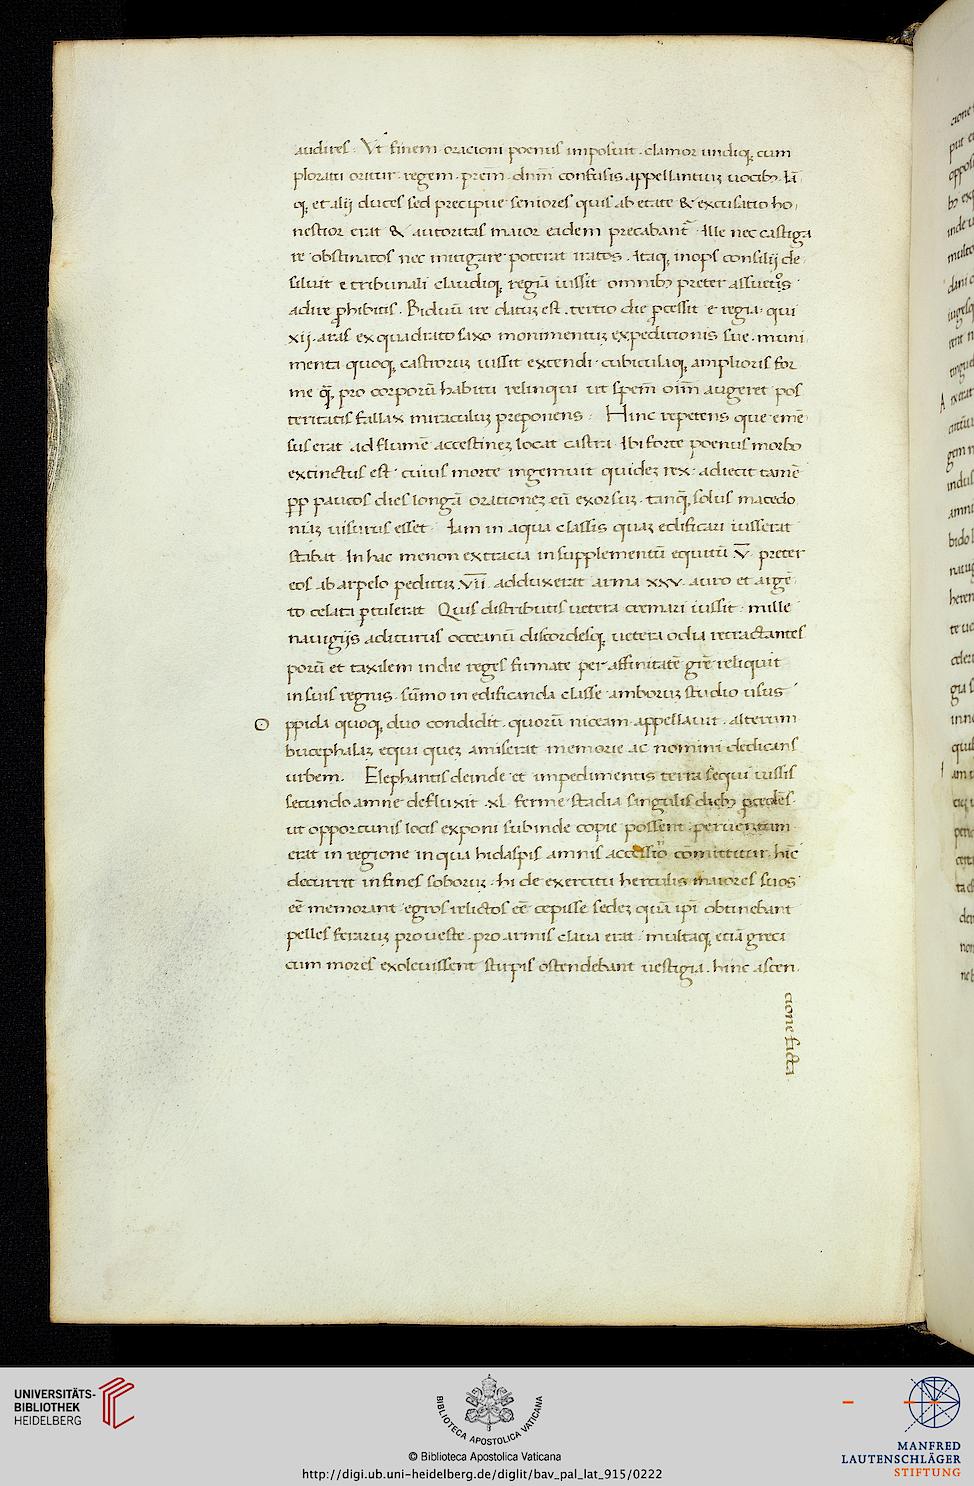 audires. Ut finem orationi poenus imposuit. clamor undiq; cum
ploratu oritur. regem. prem̄. dnm̄ confusis appellantiuz uocibꝫ. Iā
q; et alij duces sed precipue seniores quis ab etate & excusatio ho
nestior erat & autoritas maior eadem precabant᷑. Ille nec castiga
re obstinatos nec mitigare poterat iratos. Itaq; inops consilij de
siluit e tribunali claudiq; regiā iussit omnibꝫ preter assuetos
adire ꝓhibitis. Biduū ire datuz est. tertio die ꝓcessit e regia. qui
xij. aras ex quadrato saxo monimentuz expeditionis sue. muni
menta quoq; castroruz iussit extendi. cubiculaq; amplioris for
me q̄ꝫ pro corporū habitu relinqui ut spem̄ oīm augeret pos
teritatis fallax miraculuz preponens. Hinc repetens que emē
sus erat ad flumē accestinez locat castra. Ibi forte poenus morbo
extinctus est. cuius morte ingemuit quidez rex. adiecit tamē
ꝓp paucos dies longā orationez eū exorsuz. tanq̄ꝫ solus macedo
niaz uisurus esset. Iam in aqua classis quaz edificari iusserat
stabat. In hac menon extracia in supplementū equitū V̄. preter
eos ab arpelo peditum V̄ĪĪ. adduxerat arma xxv. auro et argē
to celata ꝑtulerat Quis distributis uetera cremari iussit. mille
nauigijs aditurus occeanū discordesq; uetera odia retractantes
porū et taxilem indie reges firmate per affinitatē grē reliquit
in suis regnis. sūmo in edificanda classe amboruz studio usus
Oppida quoq; duo condidit. quorū niceam appellauit. alterum
bucephalaz equi quez amiserat memorie ac nomini dedicans
urbem. Elephantis deinde et impedimentis terra sequi iussis
secundo amne defluxit. xl. ferme stadia singulis diebꝫ ꝓcedēs.
ut opportunis locis exponi subinde copie possent. peruentum
erat in regione in qua hidaspis amnis accessio cōmittitur. hīc
decurrit in fines soboruz. hi de exercitu herculis maiores suos
eē memorant. egros relictos eē cepisse sedez quā ipi obtinebant
pelles feraruz pro ueste. pro armis claua erat. multaq; etiā greci
cum mores exoleuissent stirpis ostendebant uestigia. hinc ascen
cione facta
UNIVERSITÄTS-
BIBLIOTHEK
HEIDELBERG
BIBLIOTECA APOSTOLICA VATICANA
© Biblioteca Apostolica Vaticana
http://digi.ub.uni-heidelberg.de/diglit/bav_pal_lat_915/0222
MANFRED
LAUTENSCHLÄGER
STIFTUNG